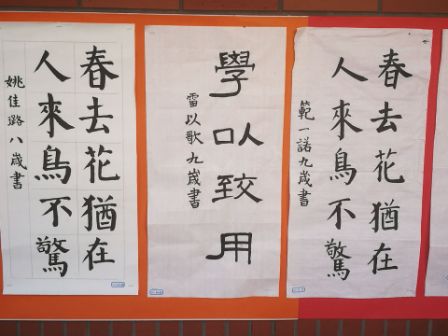 春去花猶在
人來鳥不驚
姚佳路八歲書
學以致用
雷以歌九歲書
春去花猶在
人來鳥不驚
範一諾九歲書